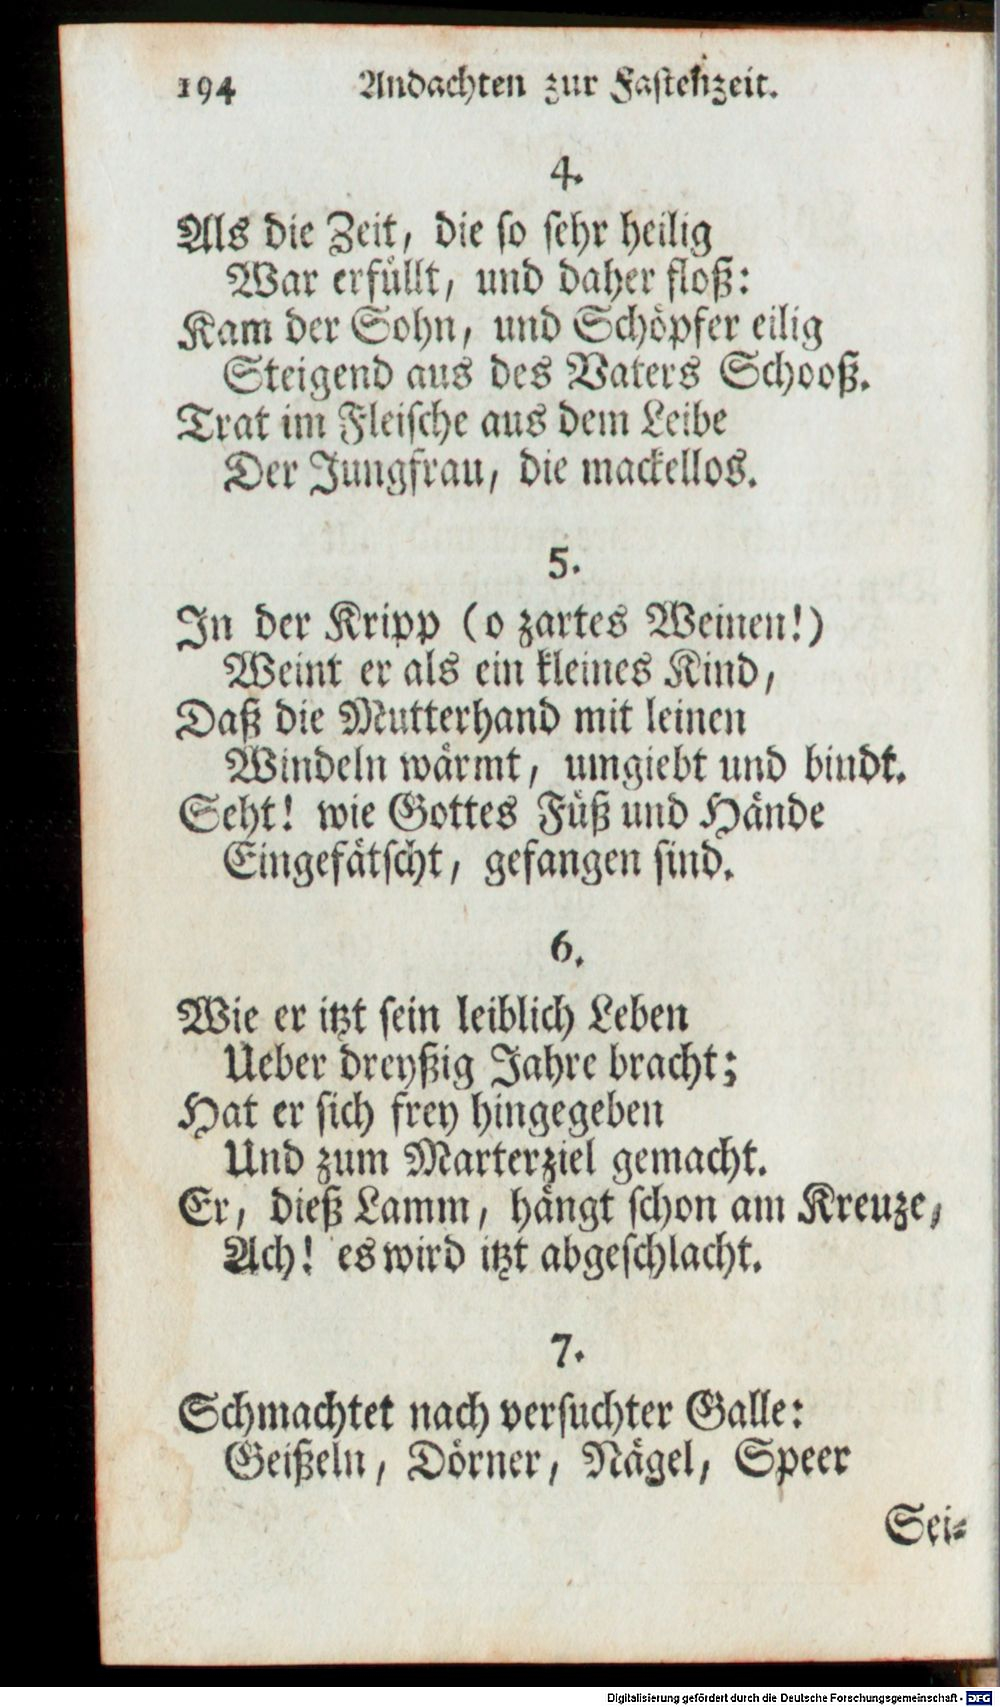 194 Andachten zur Fastenzeit.
4.
Als die Zeit, die so sehr heilig
War erfüllt, und daher floß:
Kam der Sohn, und Schöpfer eilig
Steigend aus des Vaters Schooß.
Trat im Fleische aus dem Leibe
Der Jungfrau, die mackellos.
5.
In der Kripp (o zartes Weinen!)
Weint er als ein kleines Kind,
Daß die Mutterhand mit leinen
Windeln wärmt, umgiebt und bindt.
Seht! wie Gottes Füß und Hände
Eingefätscht, gefangen sind.
6.
Wie er itzt sein leiblich Leben
Ueber dreyßig Jahre bracht;
Hat er sich frey hingegeben
Und zum Marterziel gemacht.
Er, dieß Lamm, hängt schon am Kreuze,
Ach! es wird itzt abgeschlacht.
7.
Schmachtet nach versuchter Galle:
Geißeln, Dörner, Nägel, Speer
Sei-
Digitalisierung gefördert durch die Deutsche Forschungsgemeinschaft - DFG